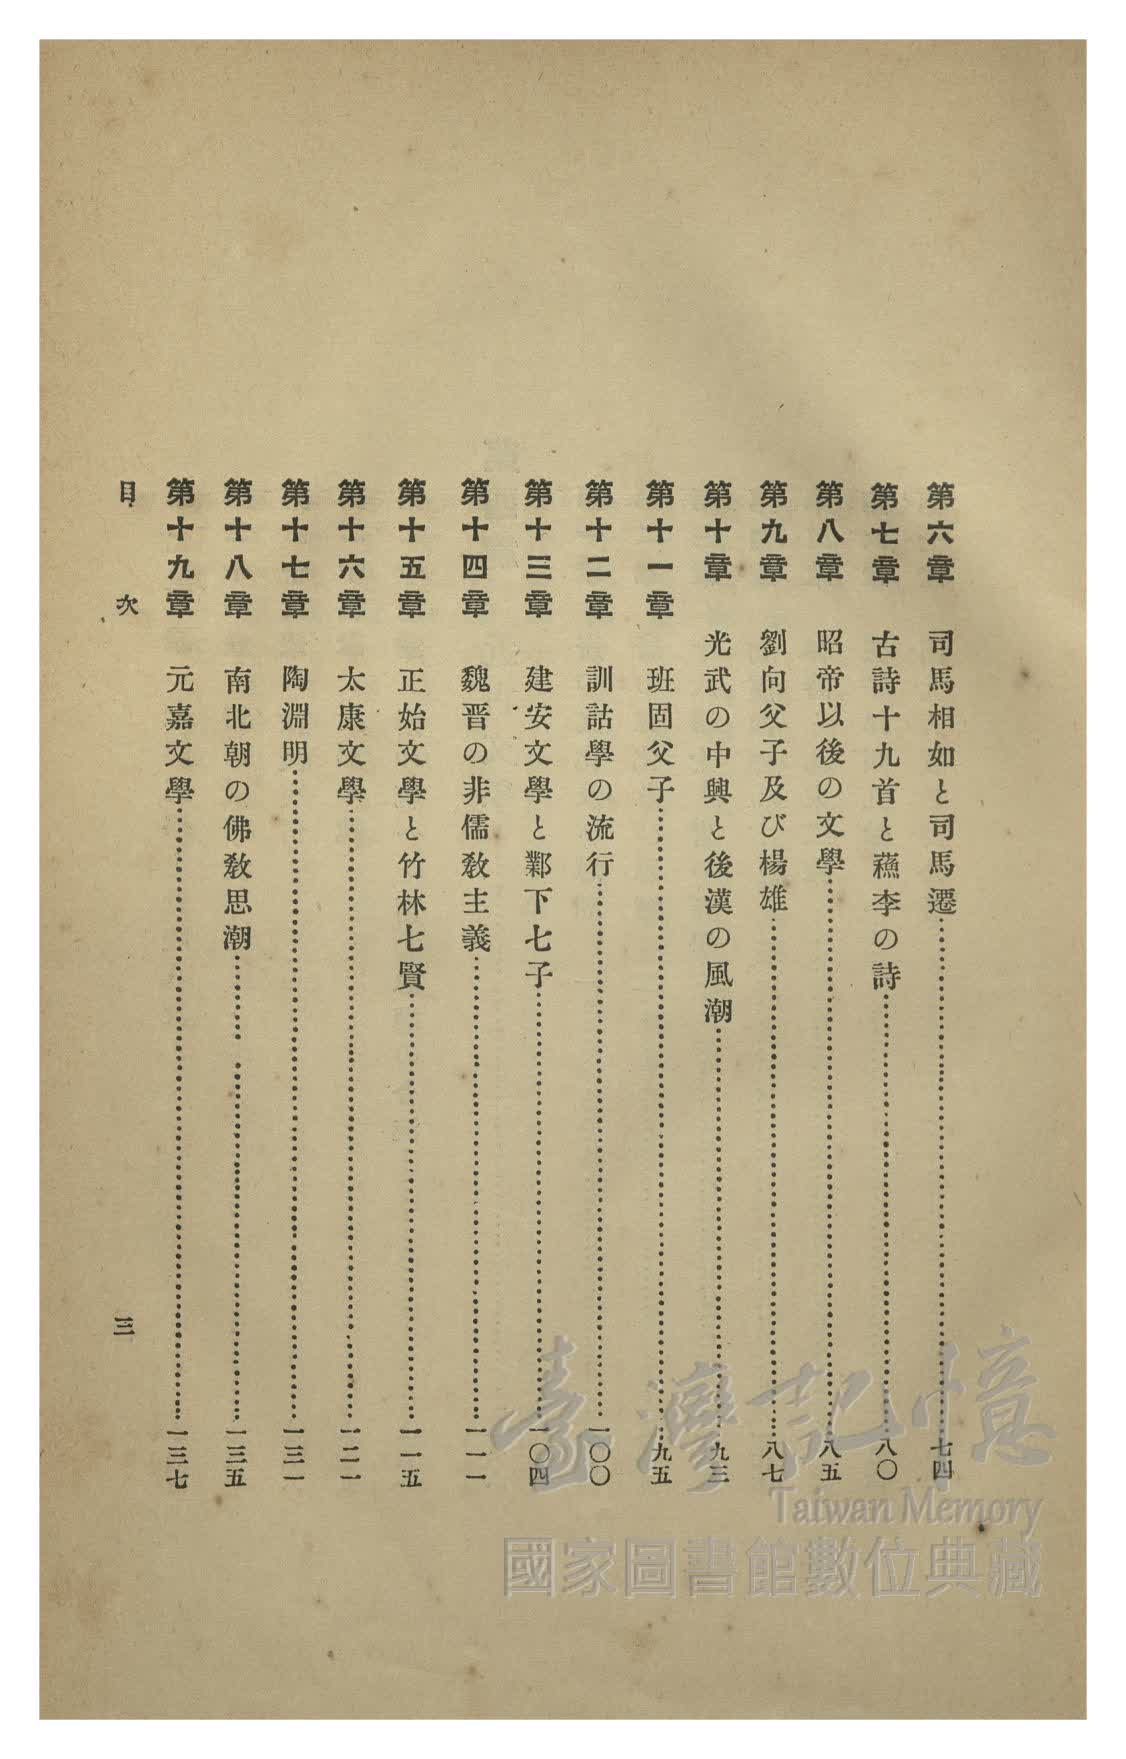 第六章 司馬相如と司馬遷……七四
第七章 古詩十九首と蘇李の詩……八〇
第八章 昭帝以後の文學……八五
第九章 劉向父子及び楊雄……八七
第十章 光武の中興と後漢の風潮……九三
第十一章 班固父子……九五
第十二章 訓詁學の流行……一〇〇
第十三章 建安文學と鄴下七子……一〇四
第十四章 魏晋の非儒教主義……一一一
第十五章 正始文學と竹林七賢……一一五
第十六章 太康文學……一二一
第十七章 陶淵明……一三一
第十八章 南北朝の佛教思潮……一三五
第十九章 元嘉文學……一三七
目次 三
臺灣記憶
Taiwan Memory
國家圖書館數位典藏